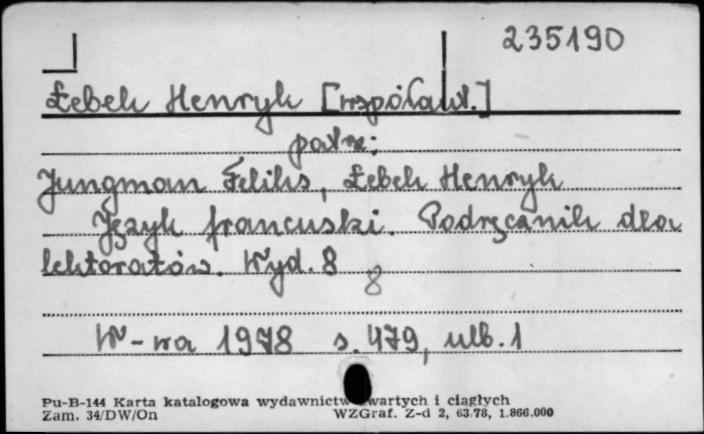 235190
Łebek Henryk [współaut.]
patrz:
Jungman Feliks, Łebek Henryk
Język francuski. Podręcznik dla
lektoratów. Wyd. 8
8
W-wa 1978 s. 479, nlb. 1
Pu-B-144 Karta katalogowa wydawnictw zwartych i ciągłych
Zam. 34/DW/On WZGraf. Z-d 2, 63.78, 1.866.000